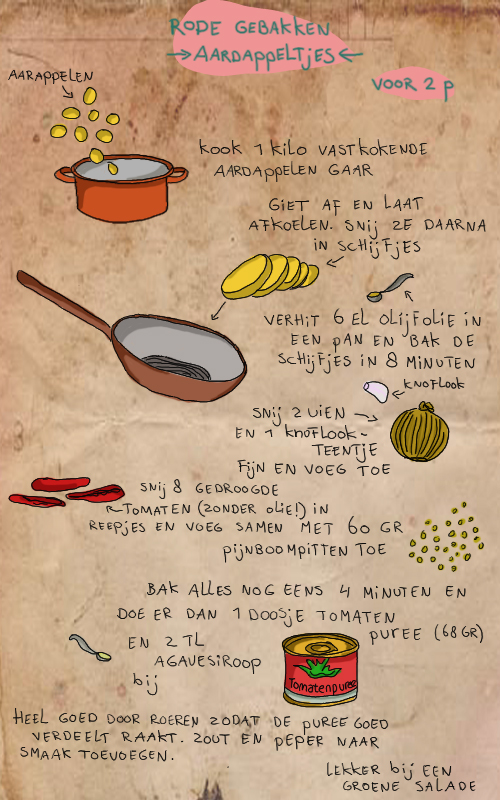 RODE GEBAKKEN
AARDAPPELTJES
VOOR 2 P
AARAPPELEN
KOOK 1 KILO VASTKOKENDE
AARDAPPELEN GAAR
GIET AF EN LAAT
AFKOELEN. SNIJ ZE DAARNA
IN SCHIJFJES
VERHIT 6 EL OLIJFOLIE IN
EEN PAN EN BAK DE
SCHIJFJES IN 8 MINUTEN
KNOFLOOK
SNIJ 2 UIEN
EN 1 KNOFLOOK-
TEENTJE
FIJN EN VOEG TOE
SNIJ 8 GEDROOGDE
TOMATEN (ZONDER OLIE!) IN
REEPJES EN VOEG SAMEN MET 60 GR
PIJNBOOMPITTEN TOE
BAK ALLES NOG EENS 4 MINUTEN EN
DOE ER DAN 1 DOOSJE TOMATEN
PUREE (68GR)
EN 2 TL
AGAVESIROOP
bij
Tomatenpuree
HEEL GOED DOOR ROEREN ZODAT DE PUREE GOED
VERDEELT RAAKT. ZOUT EN PEPER NAAR
SMAAK TOEVOEGEN.
LEKKER BIJ EEN
GROENE SALADE